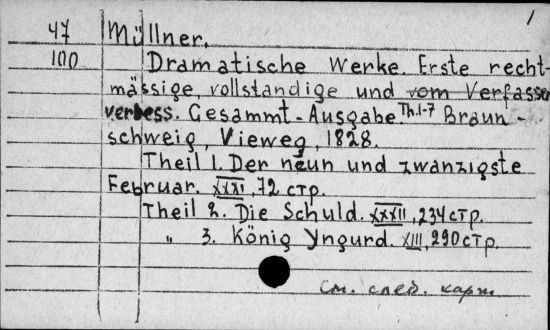 1
47 Müllner.
100 Dramatische Werke. Erste recht-
mässige, vollständige und vom Verfasser
verbess. Gesammt-Ausgabe. Th. 1-7 Braun-
schweig, Vieweg, 1828.
Theil 1. Der neun und zwanzigste
Februar. XXXI, 72 стр.
Theil 2. Die Schuld. XXXII, 234 стр.
„ 3. König Yngurd. XIII, 290 стр.
См. след. карт.